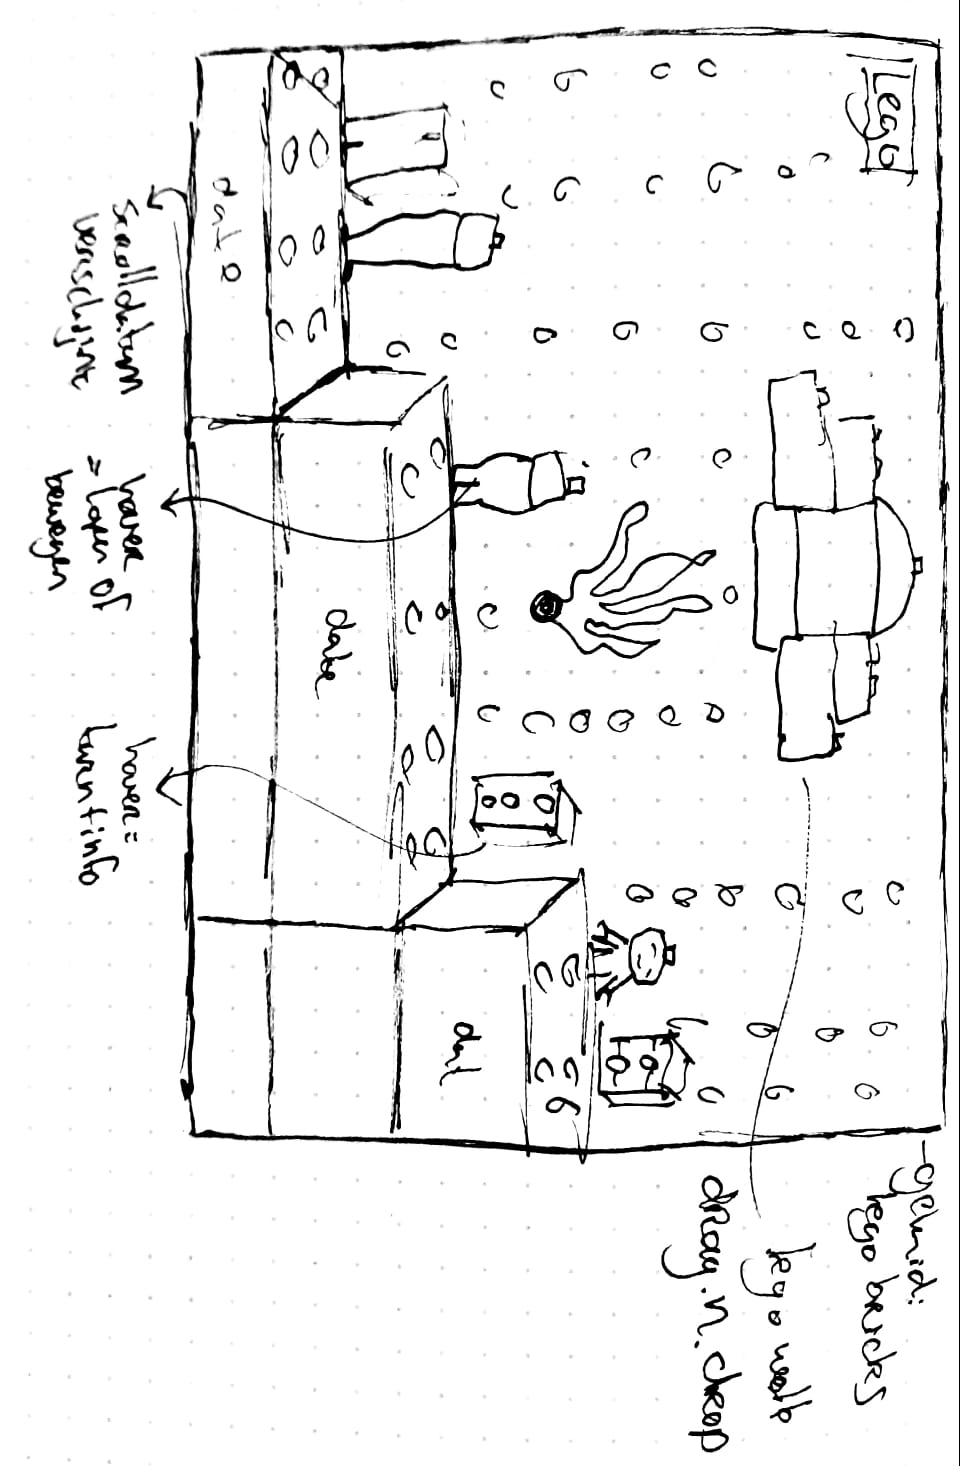 Lego
- geluid:
lego bricks
lego wolk
drag.n.drop
dat
date
date
scroll datum
verschijnt
hover
= lopen of
bewegen
hover =
turn + info